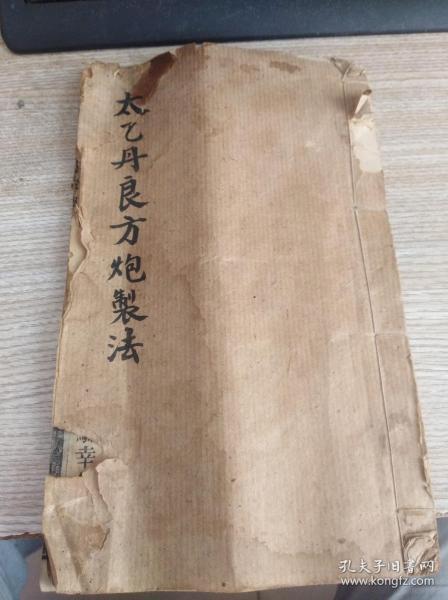 太乙丹良方炮製法
幸
孔夫子旧书网
www.kongfz.com